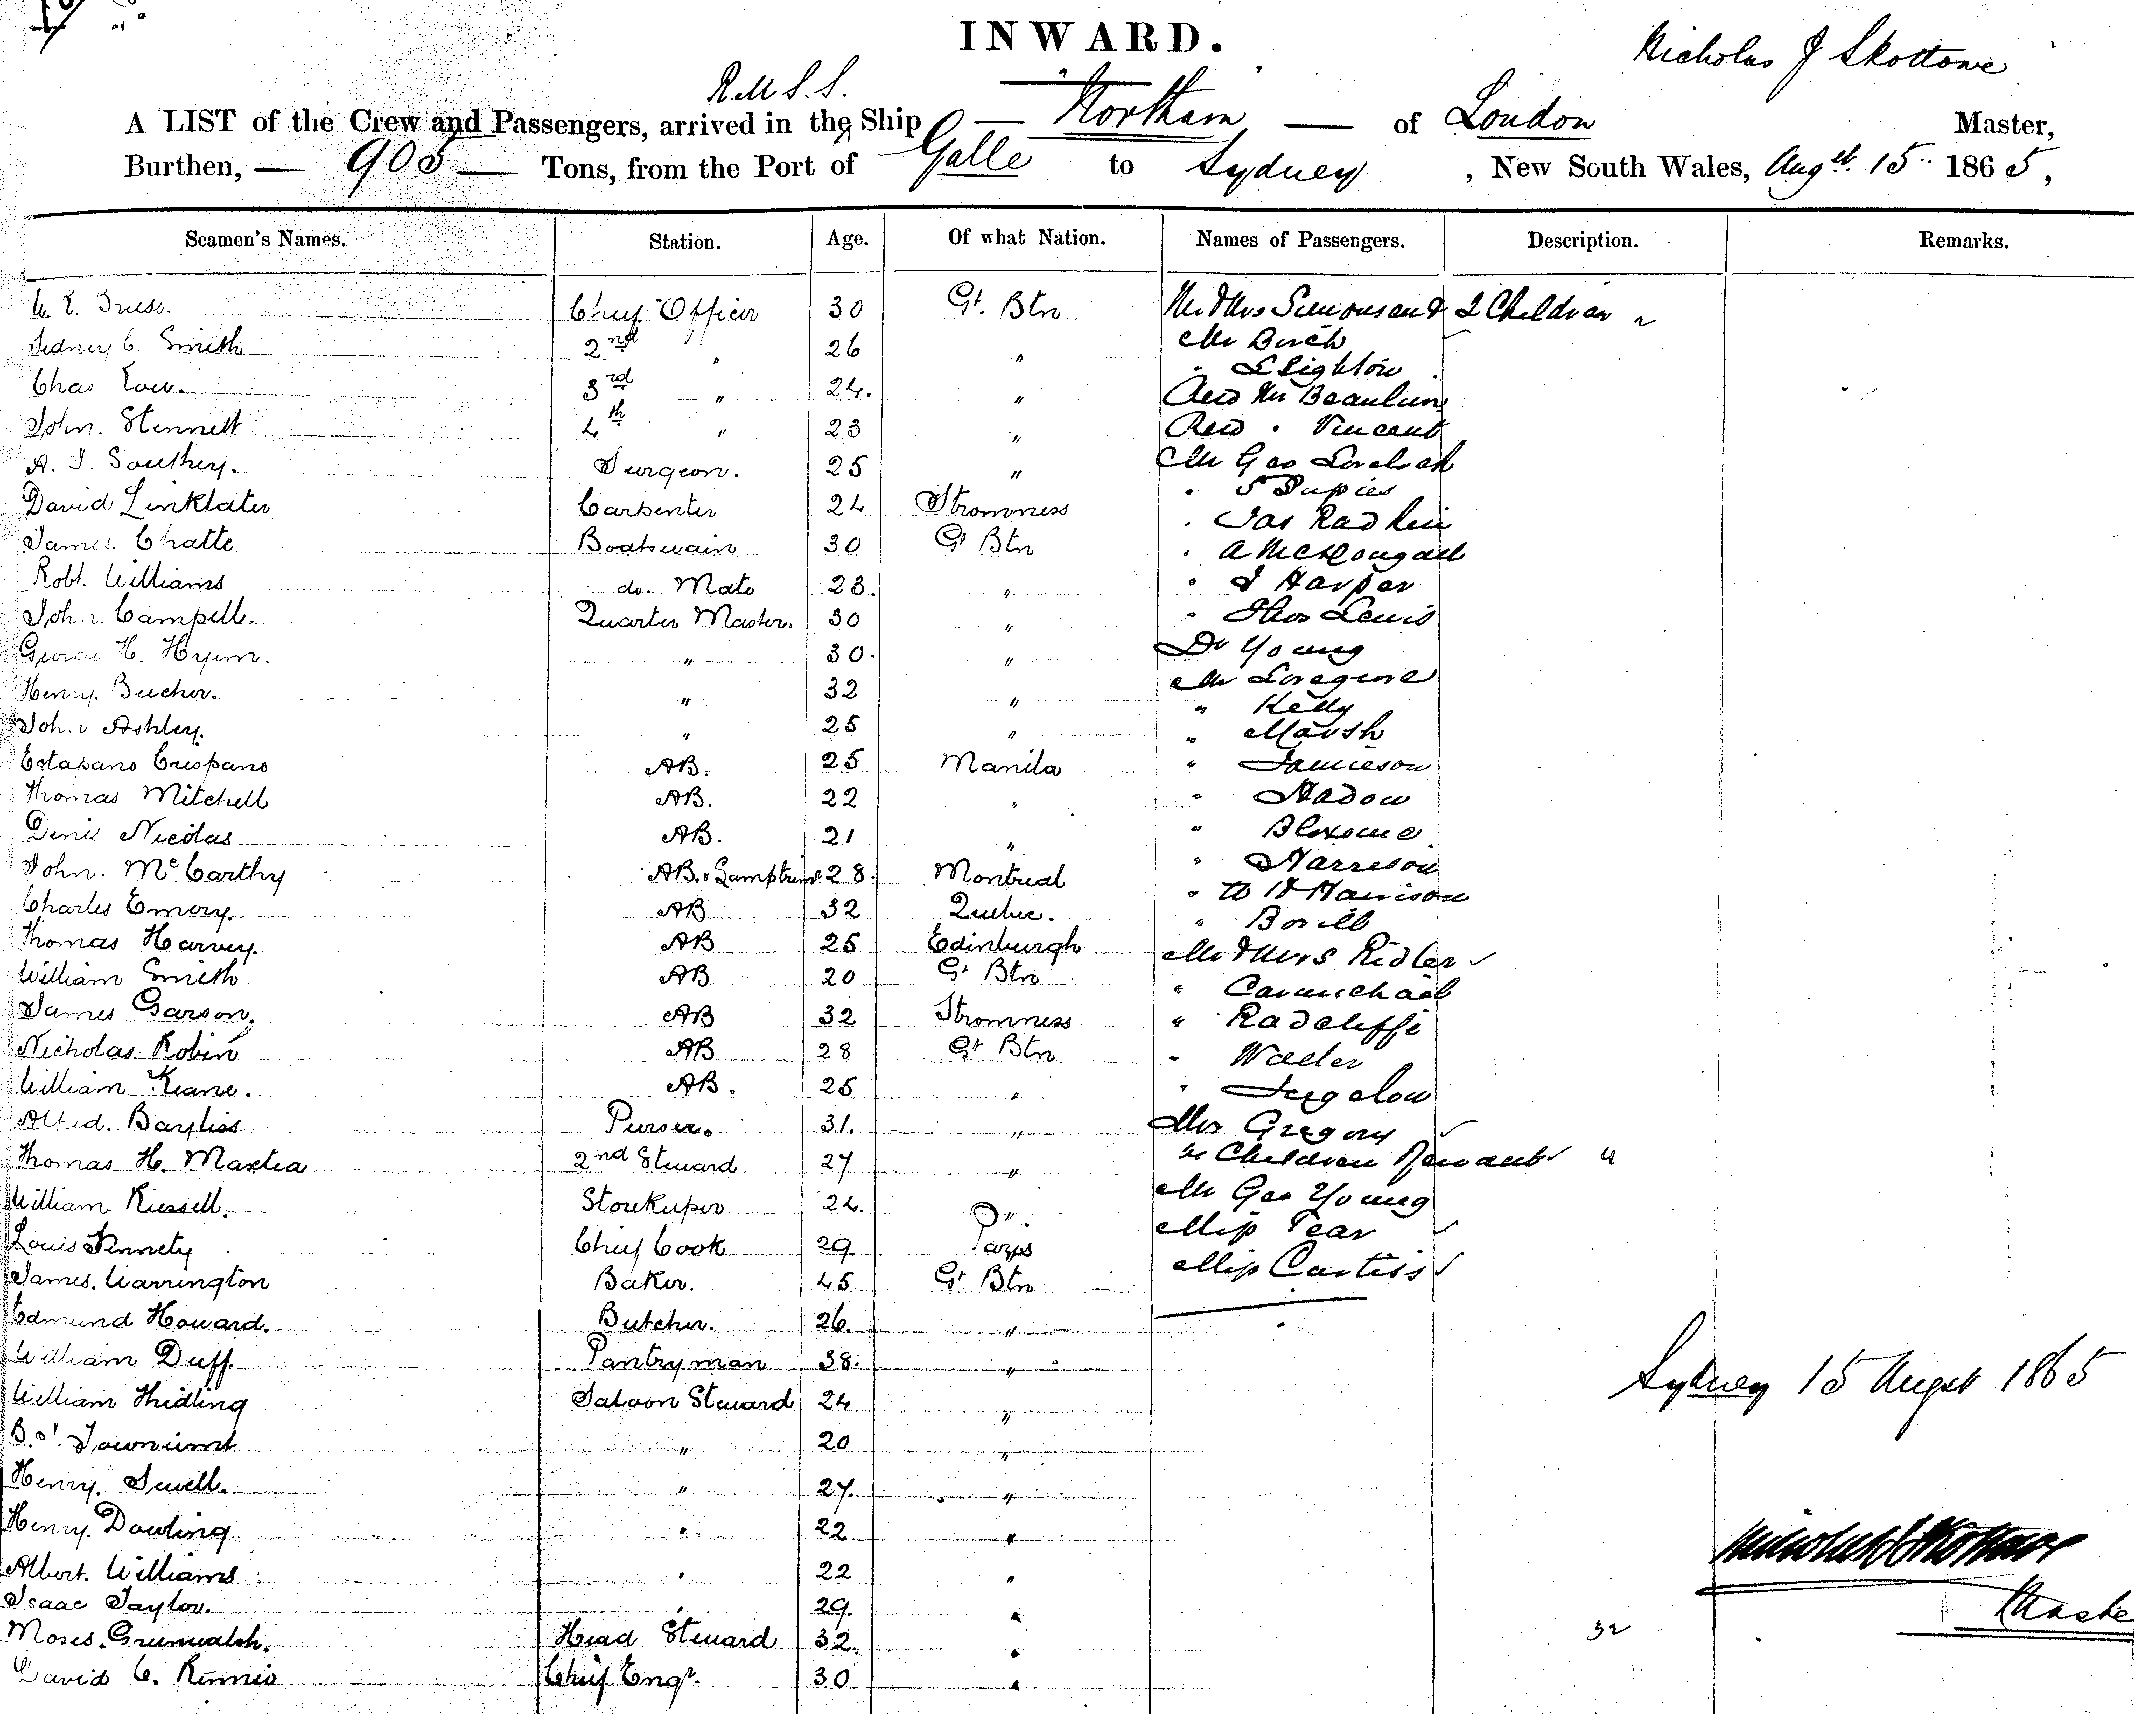 INWARD.
Nicholas J Skottowe
R.M.S.S.
A LIST of the Crew and Passengers, arrived in the Ship — Northam — of London Master,
Burthen, — 905 — Tons, from the Port of Galle to Sydney, New South Wales, Augst 15 1865,
Seamen's Names. Station. Age. Of what Nation. Names of Passengers. Description. Remarks.
Chief Officer 30 Gt. Btn Mr & Mrs and 2 Children "
Sidney C. Smith 2nd " 26 " Mr Birch
Chas 3rd " 24. " " Leighton
John Stennett 4th " 23 " Revd Mr
A. J. Southey. Surgeon. 25 " Revd " Vincent
David Linklater Carpenter 24 Stromness Mr Geo
James Chatte Boatswain 30 Gt Btn " Jas
Robt. Williams do. Mate 28. " " A McDougall
John Campell. Quarter Master. 30 " " J Harper
George H. " 30. " " Thos Lewis
Henry " 32 " Dr Young
John Ashley. " 25 " Mr
Estabano Crispano AB. 25 Manila " Kelly
Thomas Mitchell AB. 22 " " Marsh
Denis Nicolas AB. 21 " " Jamieson
John McCarthy AB. & Lamptrimr 28. Montreal " Hadow
Charles Emory. AB 32 Quebec. " Bloxsome
Thomas Harvey. AB 25 Edinburgh " Harrison
William Smith AB 20 Gt Btn " W H Harrison
James Garson. AB 32 Stromness " Bovill
Nicholas Robin AB 28 Gt Btn Mr & Mrs Ridler
William Keane. AB. 25 " " Carmichael
Alfred. Bayliss Purser. 31. " " Radcliffe
Thomas H. 2nd Steward 27 " " Waller
William Russell. Storekeeper 24. " "
Louis Chief Cook 29 Mrs Gregory
James. Warrington Baker. 45 Gt Btn Children Servant
Edmund Howard. Butcher. 26. " Mr Geo Young
William Duff. Pantryman 38. " Miss
William Saloon Steward 24 " Miss Curtiss
" 20 "
Henry. Sewell. " 27. "
Henry. Dowling " 22 "
Albert. Williams " 22 "
Isaac Taylor. " 29. "
Moses. Head Steward 32. "
David C. Rennie Chief Engr. 30 "
Sydney 15 August 1865
Nicholas J Skottowe
Maste
32